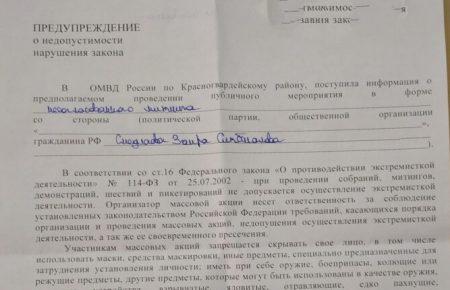 ПРЕДУПРЕЖДЕНИЕ
о недопустимости
нарушения закона
В ОМВД России по Красногвардейскому району, поступила информация о
предполагаемом проведении публичного мероприятия в форме
несогласованного митинга
со стороны (политической партии, общественной организации
«
гражданина РФ Смедляева Заира
В соответствии со ст.16 Федерального закона «О противодействии экстремистской
деятельности» № 114-ФЗ от 25.07.2002 - при проведении собраний, митингов,
демонстраций, шествий и пикетирований не допускается осуществление экстремистской
деятельности. Организатор массовой акции несет ответственность за соблюдение
установленных законодательством Российской Федерации требований, касающихся порядка
организации и проведения массовых акций, недопущения осуществления экстремистской
деятельности, а так же ее своевременного пресечения.
Участникам массовых акций запрещается скрывать свое лицо, в том числе
использовать маски, средства маскировки, иные предметы, специально предназначенные для
затруднения установления личности; иметь при себе оружие, боеприпасы, колющие или
режущие предметы, другие предметы, которые могут быть использованы в качестве оружия,
взрывчатые, ядовитые, отравляющие, едко пахнущие,